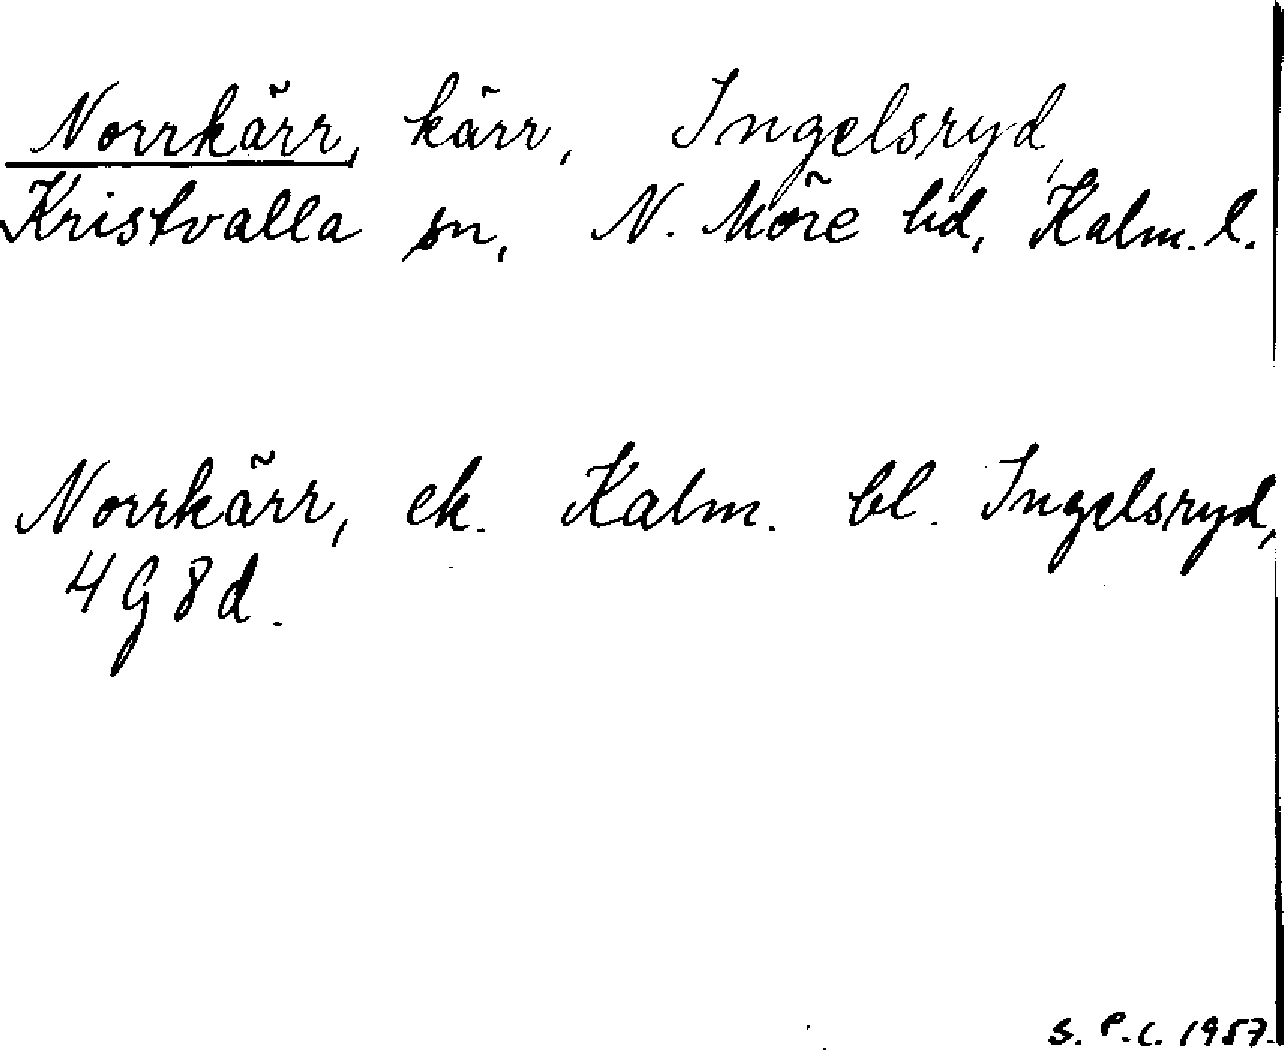 Norrkärr, kärr, Ingelsryd,
Kristvalla sn, N. Möre hd, Kalm. l.
Norrkärr, ek. Kalm. bl. Ingelsryd,
4 G 8 d.
S. P. C. 1957.